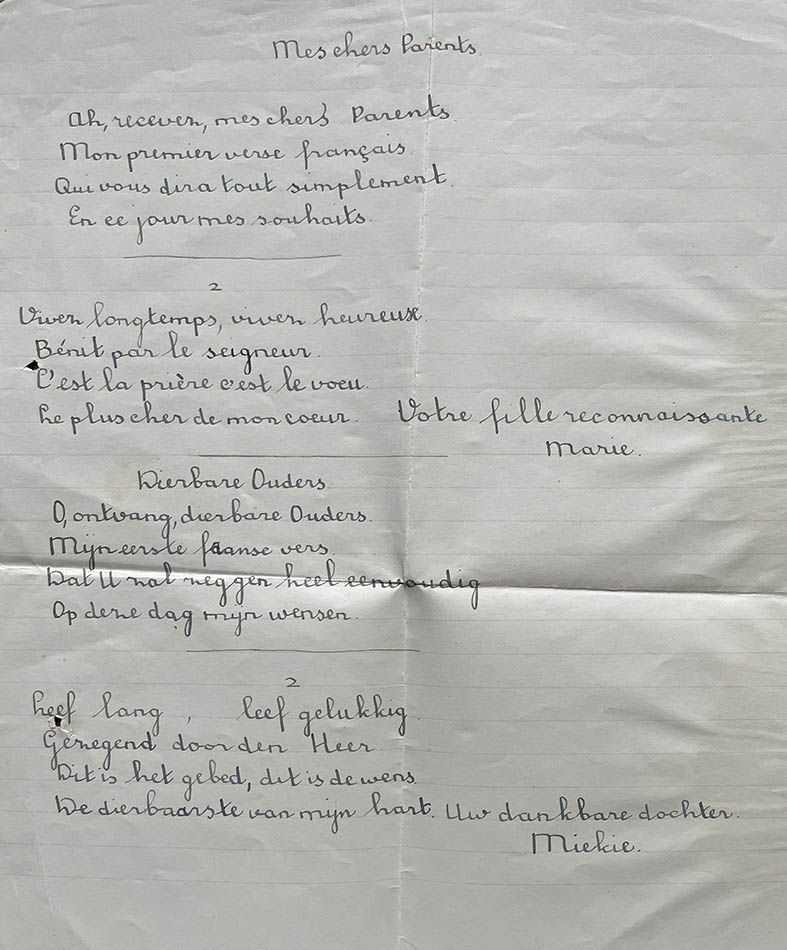 Mes chers Parents.
Ah, recevez, mes chers Parents.
Mon premier verse français
Qui vous dira tout simplement.
En ce jour mes souhaits.
2
Vivez longtemps, vivez heureux.
Bénit par le seigneur.
C'est la prière c'est le voeu.
Le plus cher de mon coeur. Votre fille reconnaissante
Marie.
Dierbare Ouders.
O, ontvang, dierbare Ouders.
Mijn eerste franse vers.
Dat U zal zeggen heel eenvoudig
Op deze dag mijn wensen.
2
Leef lang, leef gelukkig.
Gezegend door den Heer.
Dit is het gebed, dit is de wens
De dierbaarste van mijn hart. Uw dankbare dochter.
Miekie.